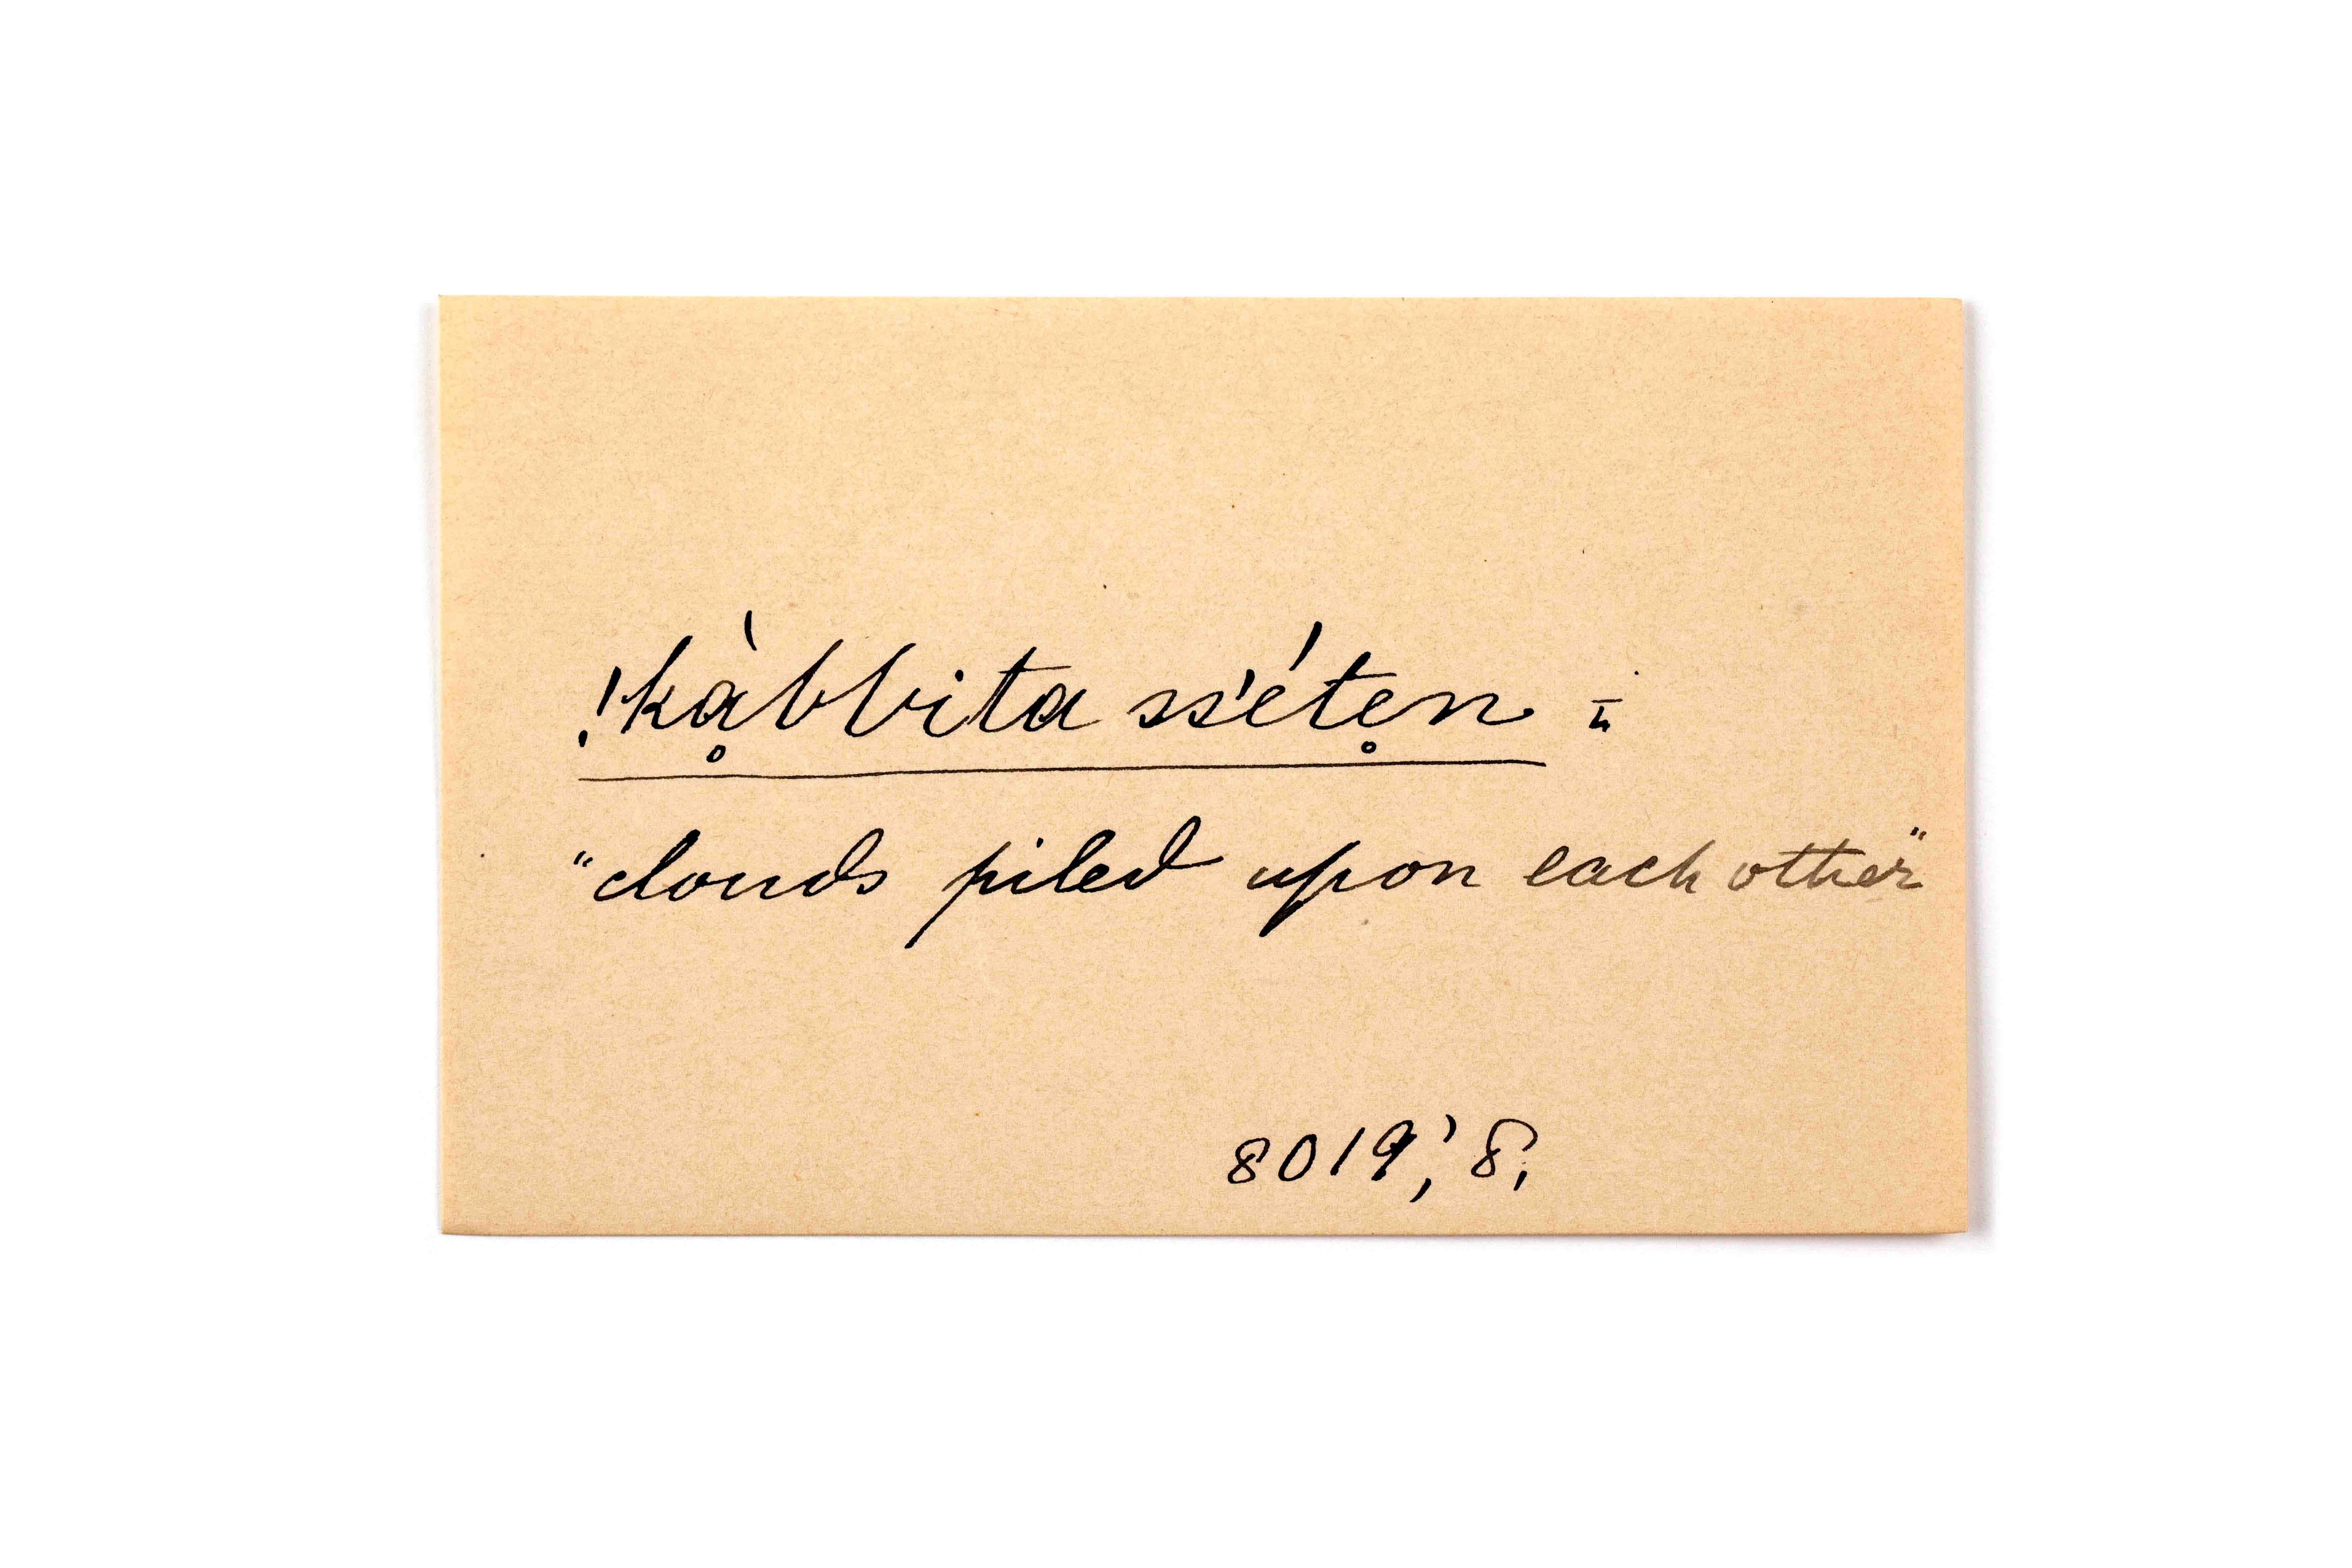 !kḁ̀bbita ssʹéte̥n =
"clouds piled upon each other"
8019;' 8,